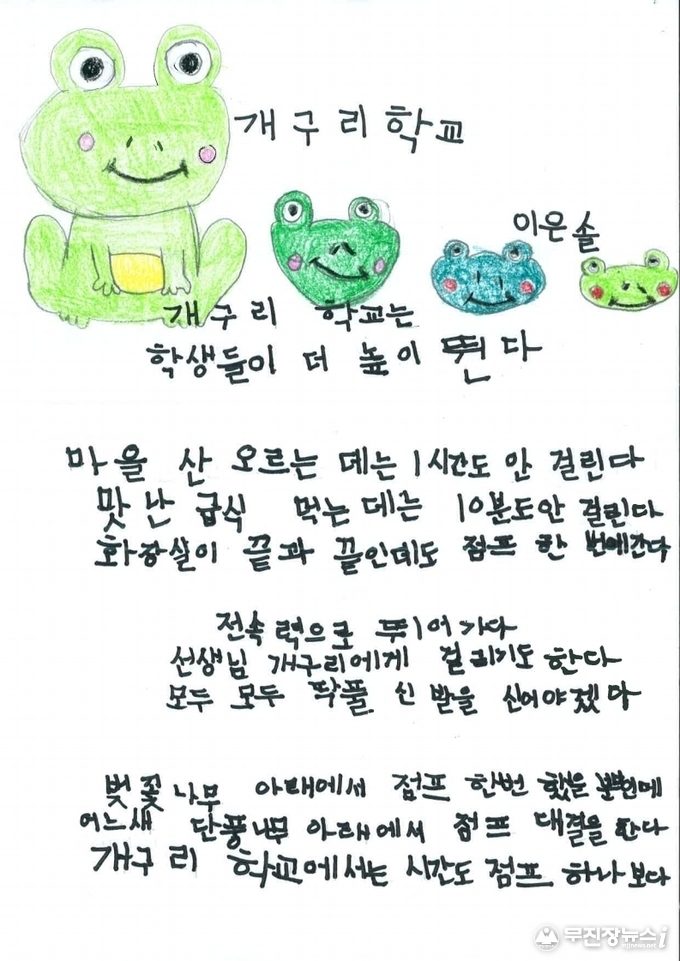 개구리학교
이은솔
개구리 학교는
학생들이 더 높이 뛴다
마을 산 오르는 데는 1시간도 안 걸린다
맛난 급식 먹는데는 10분도안 걸린다
화장실이 끝과 끝인데도 점프 한 번에간다
전속력으로 뛰어가다
선생님 개구리에게 걸리기도 한다
모두 모두 딱풀 신발을 신어야겠다
벚꽃나무 아래에서 점프 한번 했을 뿐인데
어느새 단풍나무 아래에서 점프 대결을 한다
개구리 학교에서는 시간도 점프 하나 보다
무진장뉴스i